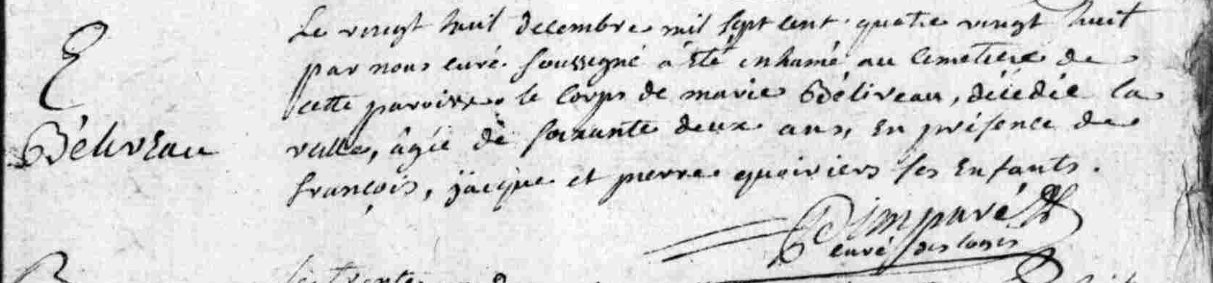 E
Béliveau
Le vingt huit decembre mil sept cent quatre vingt huit
par nous curé soussigné à été inhumé au cemetiere de
cette paroisse le corps de marie Béliveau, décédée la
veille, âgée de soixante deux ans, en présence de
françois, jacque et pierre quoiriers ses enfants.
curé des